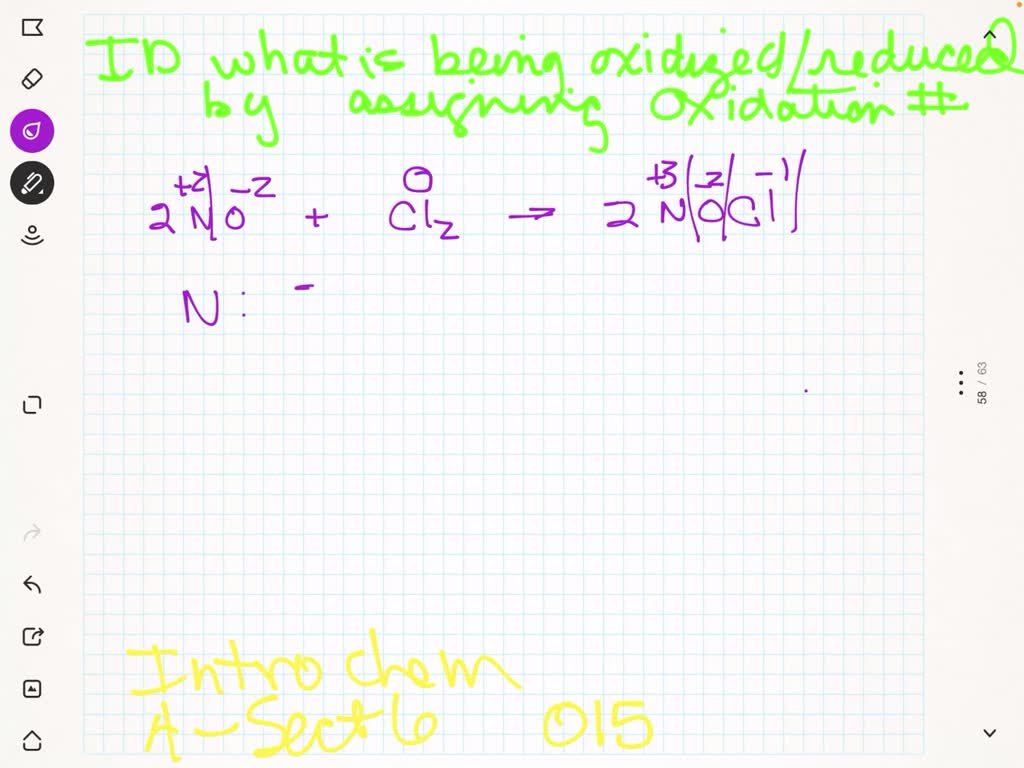 ID what is being oxidized/reduced
by assigning Oxidation #
+2 -2 0 +3 -2 -1
2 NO + Cl2 → 2 NOCl
N: -
58 / 63
Intro Chem
A-Sect 6 015